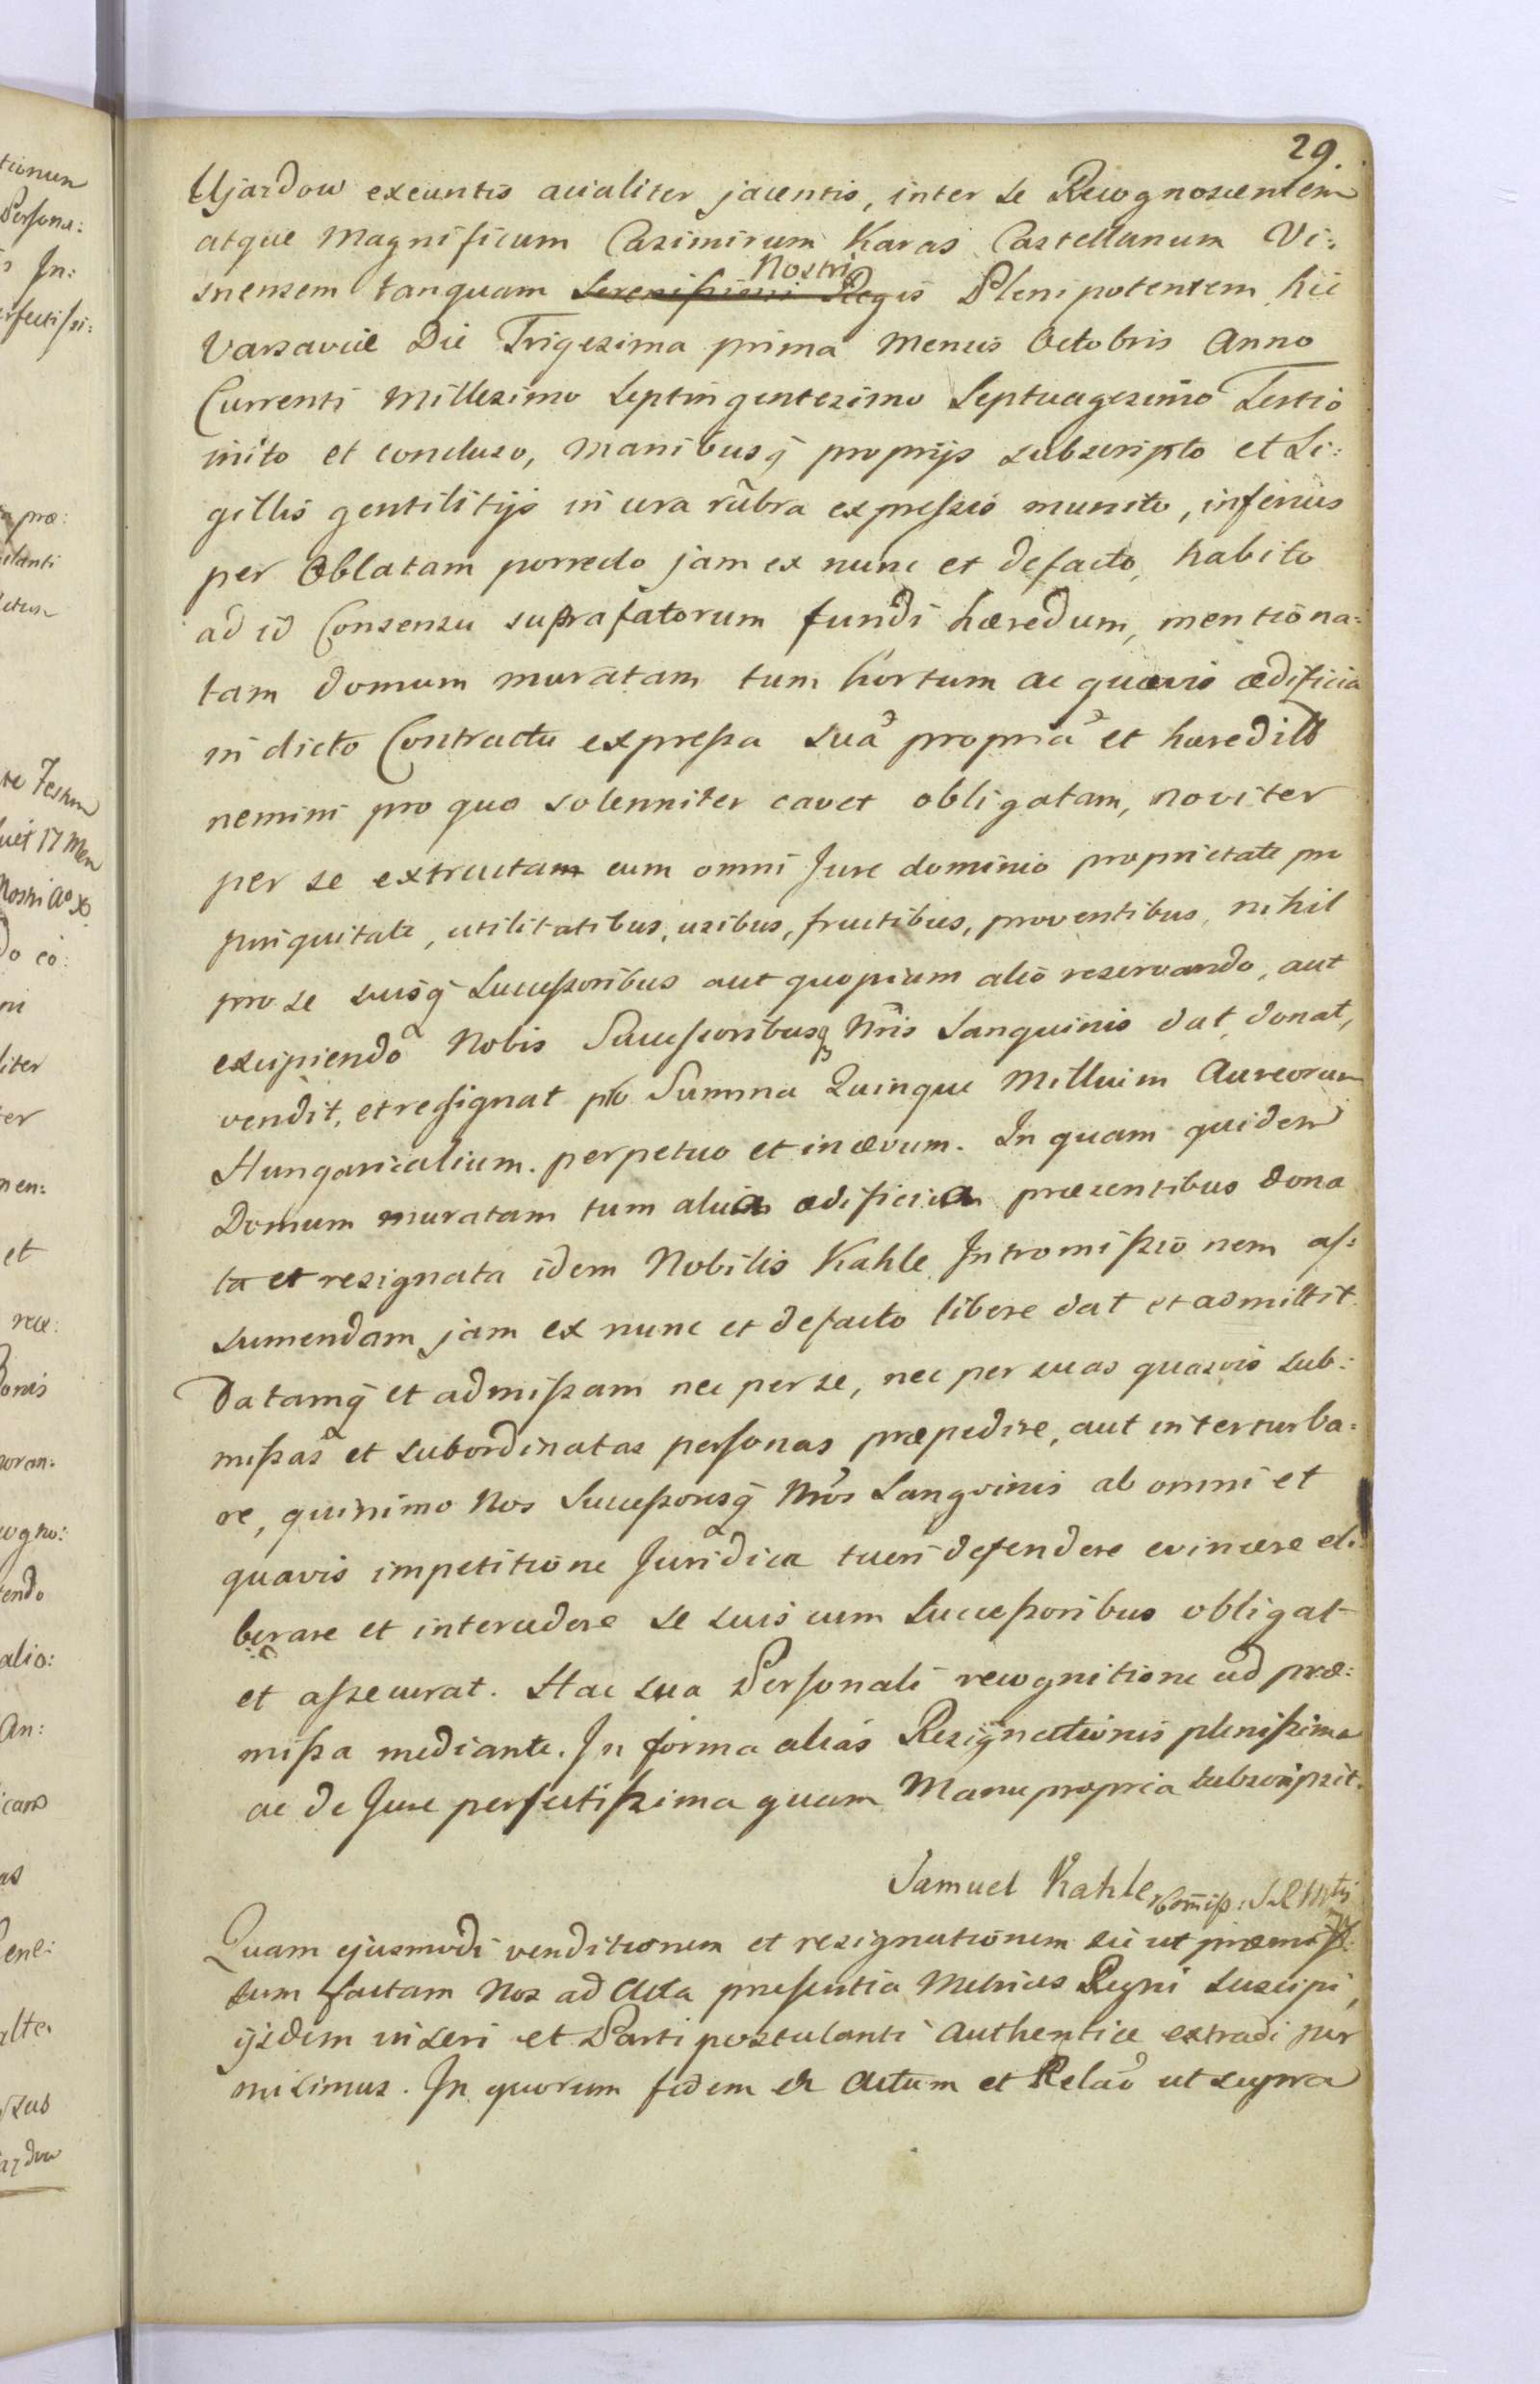 29.
Ujazdow exeuntis acialiter jacentis, inter se Recognoscentem
atque Magnificum Casimirum Karas Castellanum Vi:
Nostri
snensem tanquam Serenissimi Regis Plenipotentem hic
Varsaviæ Die Trigesima prima Mensis Octobris Anno
Currenti Millesimo Septingentesimo Septuagesimo Tertio
inito et concluso, Manibusq̃ proprijs subscripto et Si:
gillis gentilitijs in cera rubra expressis munito, inferius
per Oblatam porrecto jam ex nunc et defacto, habito
ad id Consensu suprafatorum fundi hæredum, mentiona:
tam domum muratam tum hortum ac quævis ædificia
in dicto Contractu expressa suã propriã et hæredit̃
nemini pro quo solenniter cavet obligatam, noviter
per se extructam cum omni Jure dominio proprietate pro
pinquitate, utilitatibus, usibus, fructibus, proventibus, nihil
pro se suisq̃ Successoribus aut quopiam alio reservando, aut
excipiendo Nobis Successoribusq̃ Nr̃is Sanguinis dat, donat,
vendit, et resignat pro Summa Quinque Millium Aureorum
Hungaricalium. perpetuo et in ævum. In quam quidem
Domum muratam tum alia ædificia præsentibus dona
ta et resignata idem Nobilis Kahle Intromissionem as:
sumendam jam ex nunc et defacto libere dat et admittit
Datamq̃ et admissam nec per se, nec per suas quasvis sub:
missas et subordinatas personas præpedire, aut interturba:
re, quinimo Nos Successoresq̃ Nr̃os Sangvinis ab omni et
quavis impetitione Juridica tueri defendere evincere eli:
berare et intercedere se suis cum Successoribus obligat
et assecurat. Hac sua Personali recognitione ad præ:
missa mediante. In forma alias Resignationis plenissima
ac de Jure perfectissima quam Manu propria subscripsit.
Samuel Kahle Com̃iss: J K Mti
Quam ejusmodi venditionem et resignationem sic ut præmis:
sum factam Nos ad Acta præsentia Metrices Regni suscipi,
ijsdem inseri et Parti postulanti authentice extradi per
misimus. In quorum fidem et Actum et Relaõ ut supra